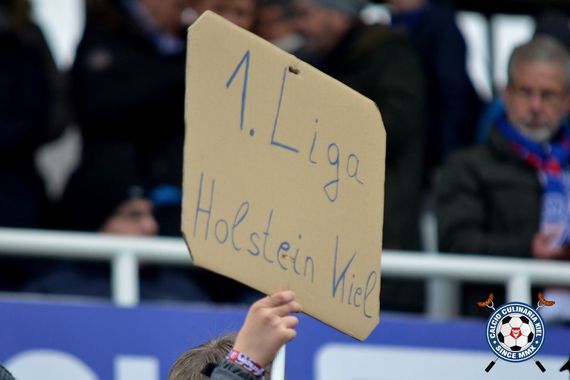 1. Liga
Holstein Kiel
CALCIO CULINARIA KIEL
SINCE MMX